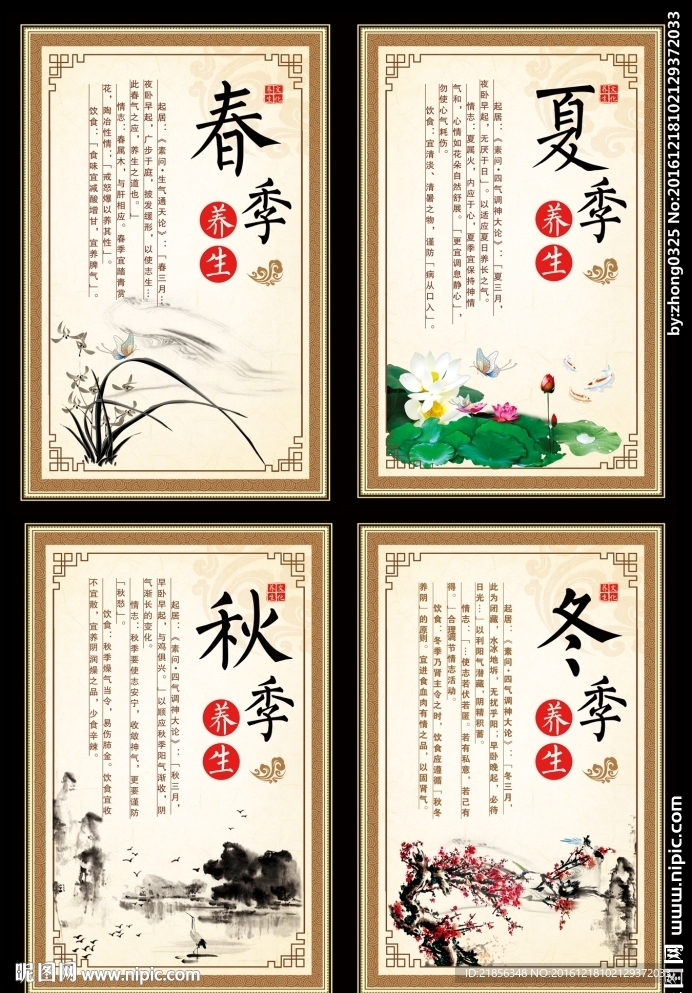 春季
养生
养生
文化
起居：《素问·生气通天论》：「春三月…
夜卧早起，广步于庭，披发缓形，以使志生…
此春气之应，养生之道也。」
情志：春属木，与肝相应。春季宜踏青赏
花，陶冶性情；「戒怒爆以养其性」。
饮食：「食味宜减酸增甘，宜养脾气」。
夏季
养生
养生
文化
起居：《素问·四气调神大论》：「夏三月，
夜卧早起，无厌于日」。以适应夏日养长之气。
情志：夏属火，内应于心，夏季宜保持神情
气和，心情如花朵自然舒展。「更宜调息静心」，
勿使心气耗伤。
饮食：宜清淡、清暑之物，谨防「病从口入」。
秋季
养生
养生
文化
起居：《素问·四气调神大论》：「秋三月，
早卧早起，与鸡俱兴。」以顺应秋季阳气渐收，阴
气渐长的变化。
情志：秋季要使志安宁，收敛神气，更要谨防
「秋愁」。
饮食：秋季燥气当令，易伤肺金。饮食宜收
不宜散，宜养阴润燥之品，少食辛辣。
冬季
养生
养生
文化
起居：《素问·四气调神大论》：「冬三月，
此为闭藏，水冰地坼，无扰乎阳；早卧晚起，必待
日光…」以利阳气潜藏，阴精积蓄。
情志：「…使志若伏若匿。若有私意，若己有
得。」合理调节情志活动。
饮食：冬季乃肾主令之时，饮食应遵循「秋冬
养阴」的原则。宜进食血肉有情之品，以固肾气。
昵图网 www.nipic.com
ID:21856348 NO:20161218102129372033
by:zhong0325 No:20161218102129372033
昵图网 www.nipic.com